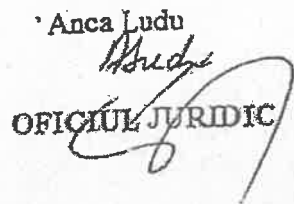 Anca Ludu
OFICIUL JURIDIC